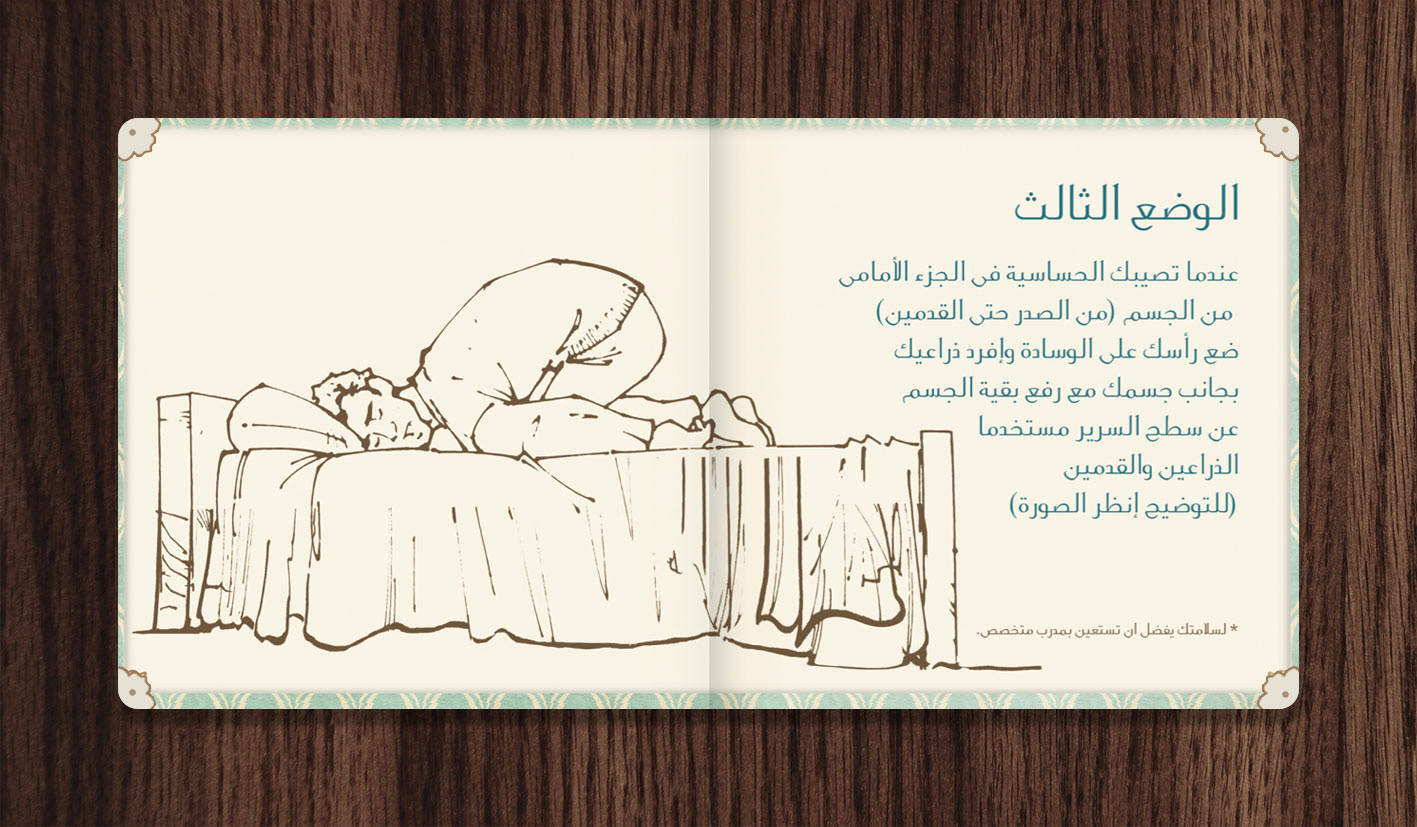 الوضع الثالث
عندما تصيبك الحساسية فى الجزء الأمامى
من الجسم (من الصدر حتى القدمين)
ضع رأسك على الوسادة وإفرد ذراعيك
بجانب جسمك مع رفع بقية الجسم
عن سطح السرير مستخدما
الذراعين والقدمين
(للتوضيح إنظر الصورة)
* لسلامتك يفضل ان تستعين بمدرب متخصص.